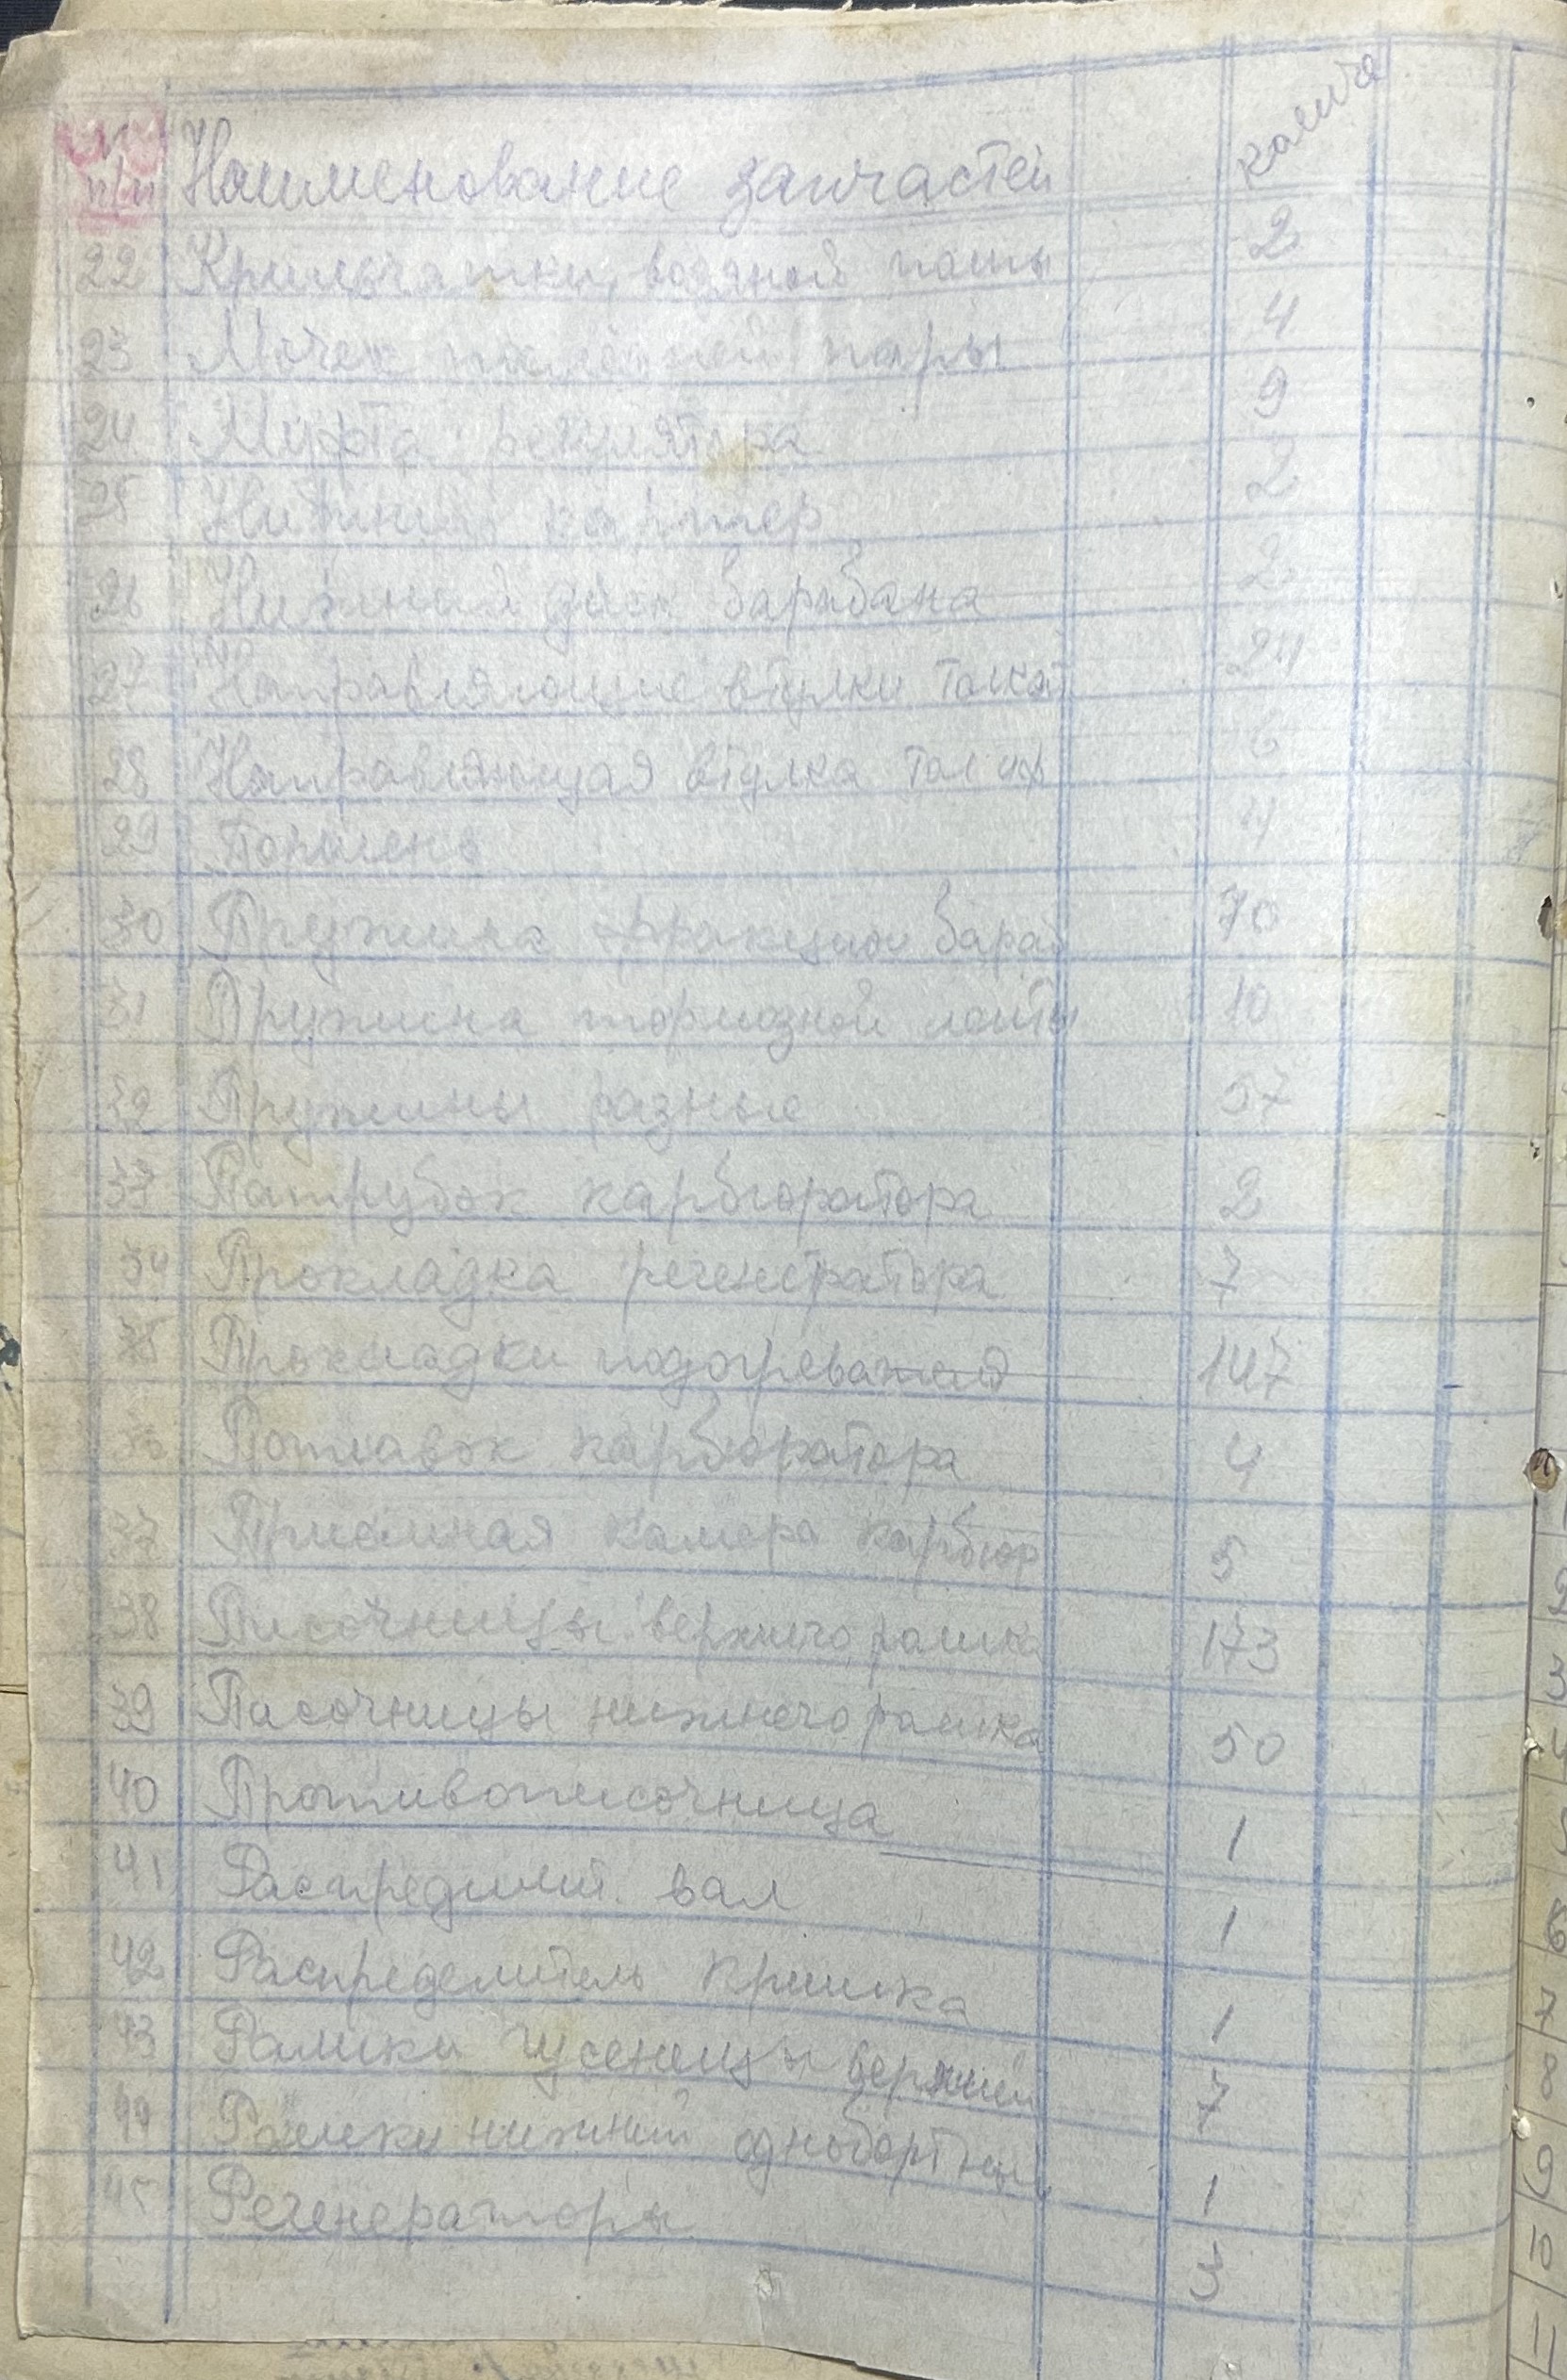 № п/п Наименование запчастей колич
22 Крильчатки водяной помы 2
23 пары 4
24 Муфта регулятора 9
25 Нижний картер 2
26 Нижний диск барабана 2
27 Направляющие втулки толкат 24
28 Направляющая втулка 6
29 Поршень 4
30 Пружина фракцион бараб 70
31 Пружина тормозной ленты 10
32 Пружины разные 57
33 Патрубок карбюратора 2
34 Прокладка регенератора 7
35 Прокладки подогревателя 147
36 Поплавок карбюратора 4
37 Приемная камера карбюр 5
38 верхнего рамка 173
39 Пасочницы нижнего рамка 50
40 1
41 Распределит. вал 1
42 Распределитель кришка 1
43 Рамики гусеницы верхний 7
44 Рамики нижний однобортный 1
45 Регенераторы 3